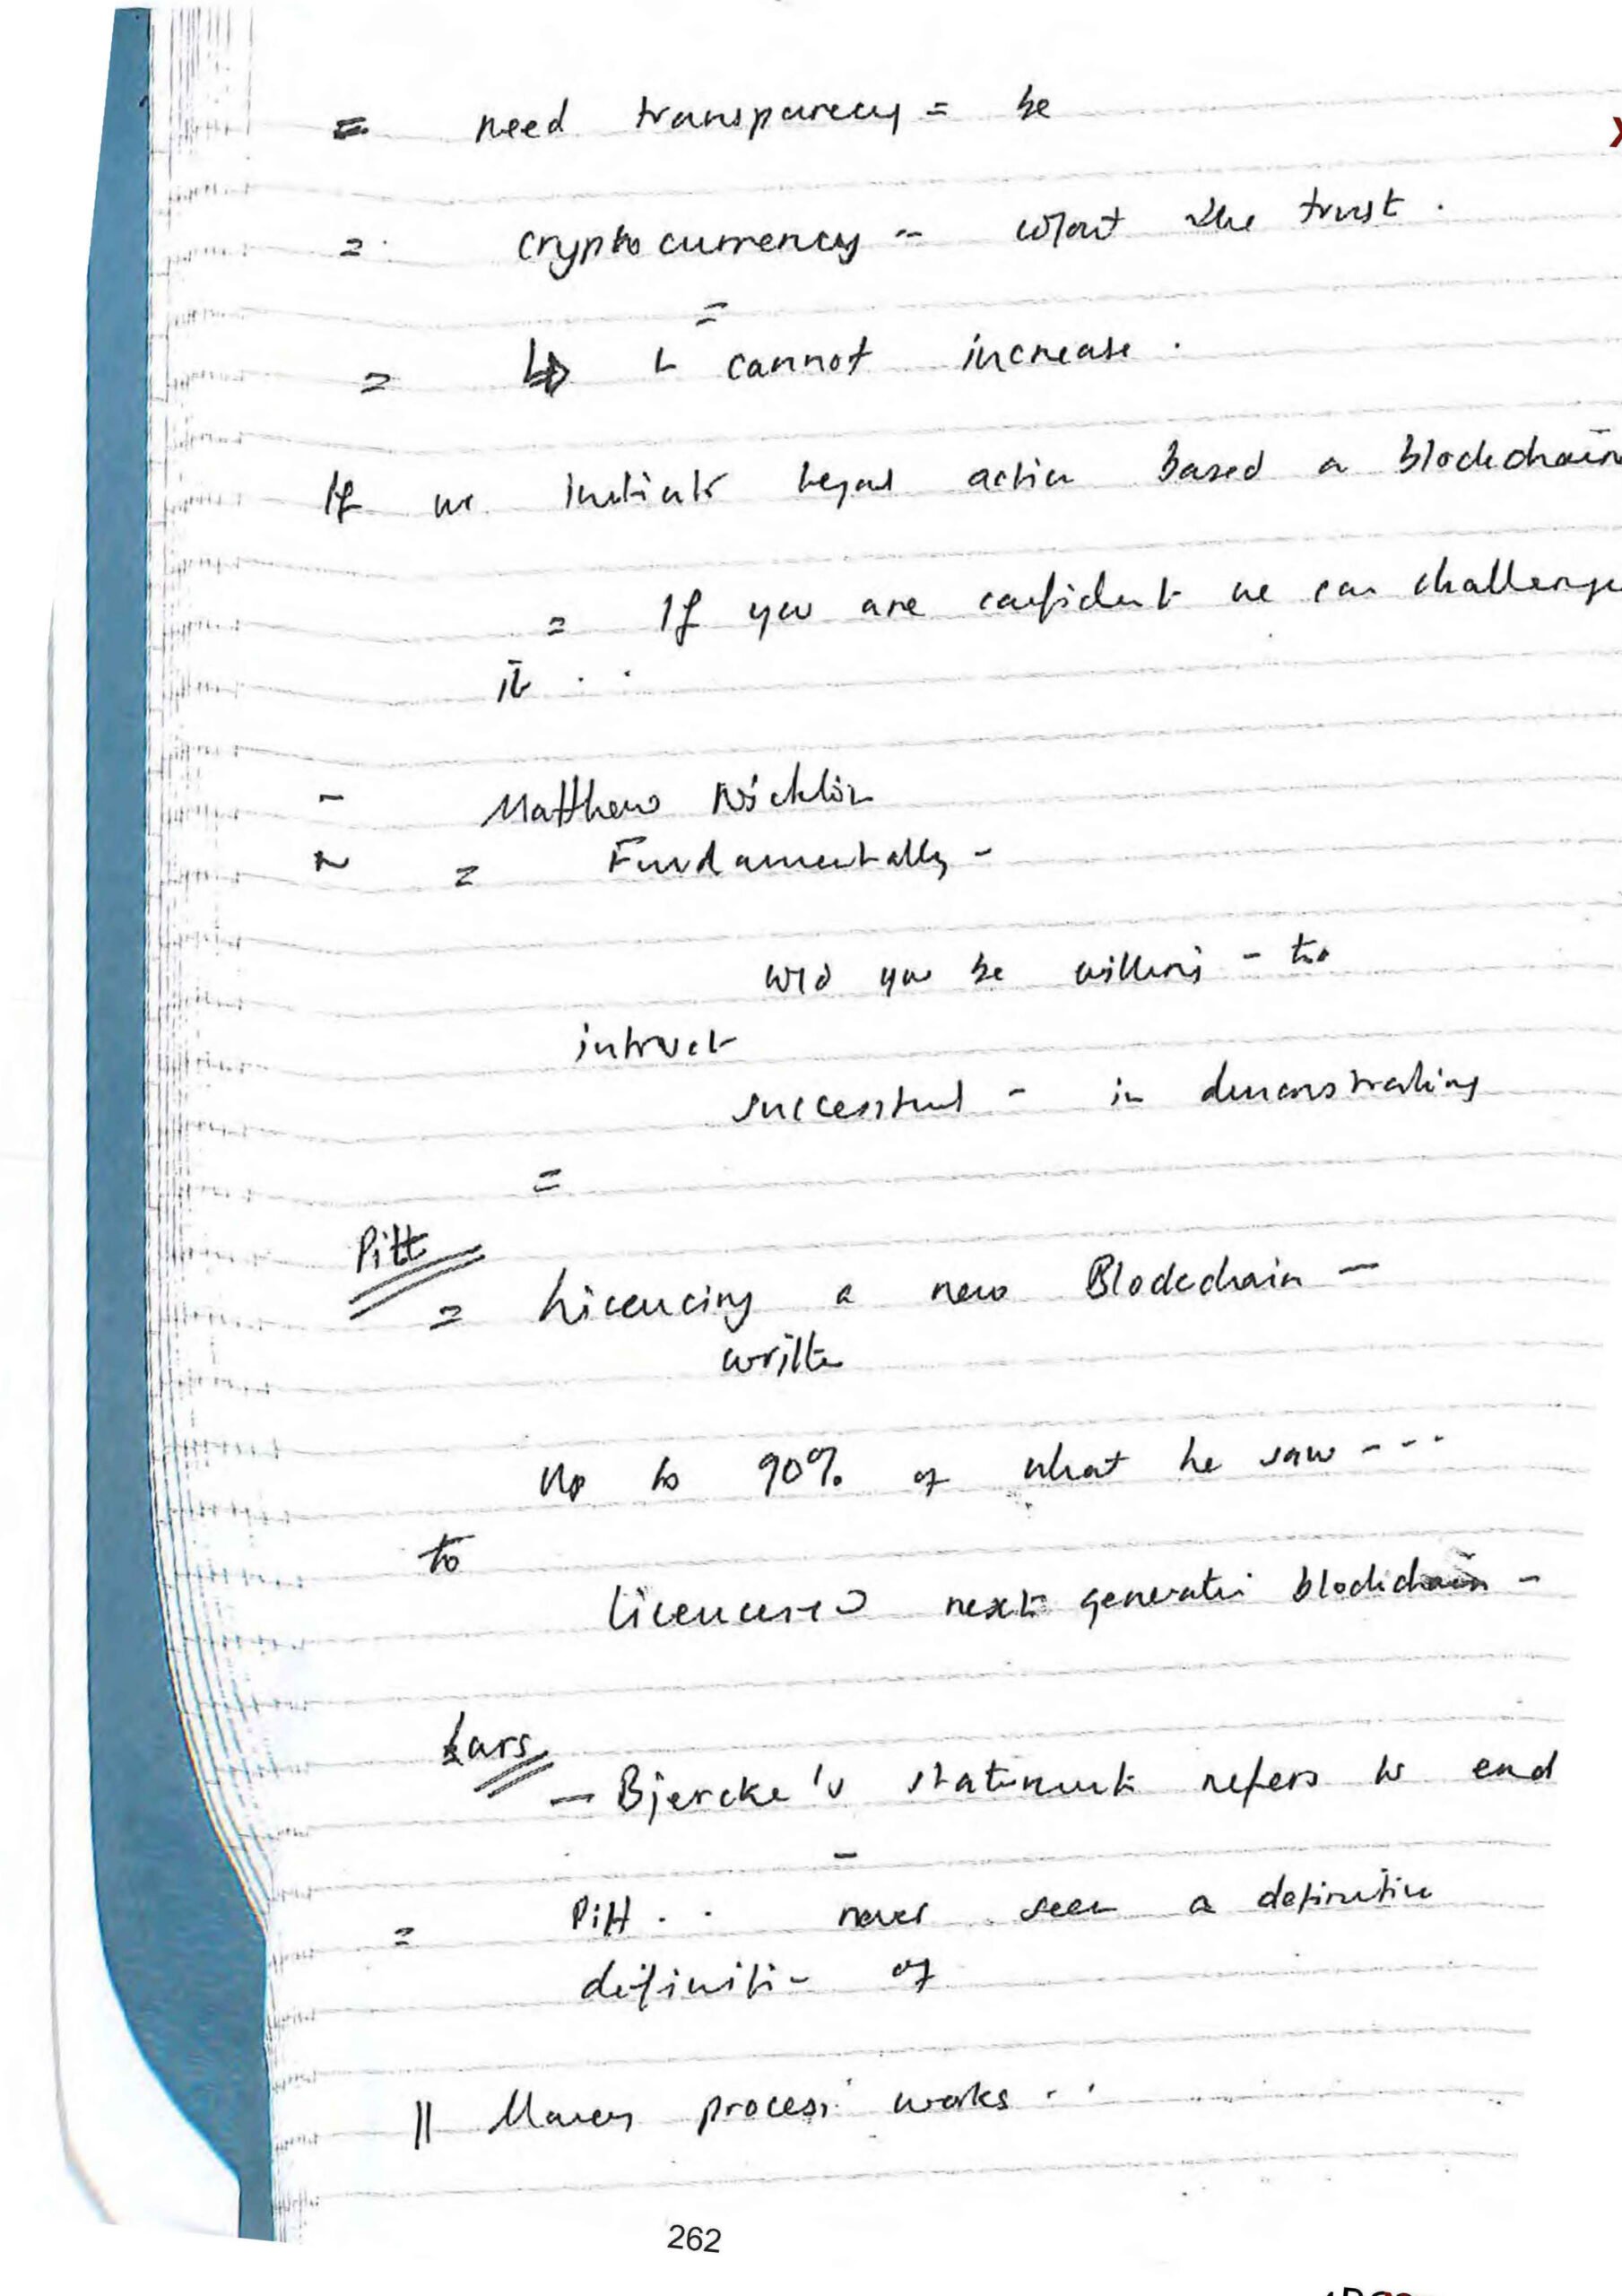 = need transparency = be
= cryptocurrency - w/out the trust.
=
= ↳ cannot increase.
If we initiate legal action based a blockchain
= If you are confident we can challenge
it . .
- Matthew Nicklin
~ = Fundamentally -
wld you be willing - to
intruct
successful - in demonstrating
=
Pitt
= Licencing a new Blockchain -
written
Up to 90% of what he saw ---
to
licenced next generati blockchain -
Lars
- Bjercke's statement refers to end
-
= Pitt . . never seen a definitive
definiti- of
|| process works . .
262